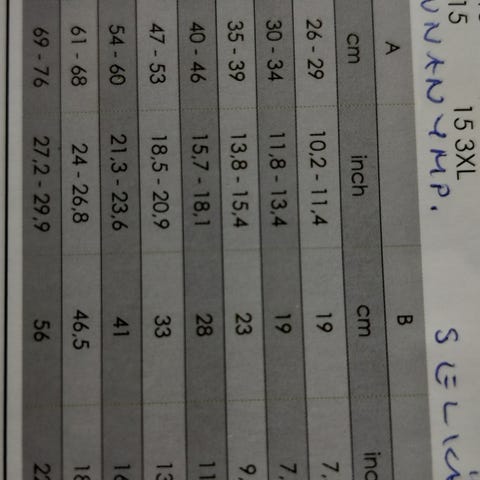 15 15 3XL
A B
cm inch cm
26 - 29 10,2 - 11,4 19 7,
30 - 34 11,8 - 13,4 19 7,
35 - 39 13,8 - 15,4 23 9,
40 - 46 15,7 - 18,1 28 11
47 - 53 18,5 - 20,9 33 13
54 - 60 21,3 - 23,6 41 16
61 - 68 24 - 26,8 46,5 18
69 - 76 27,2 - 29,9 56 22